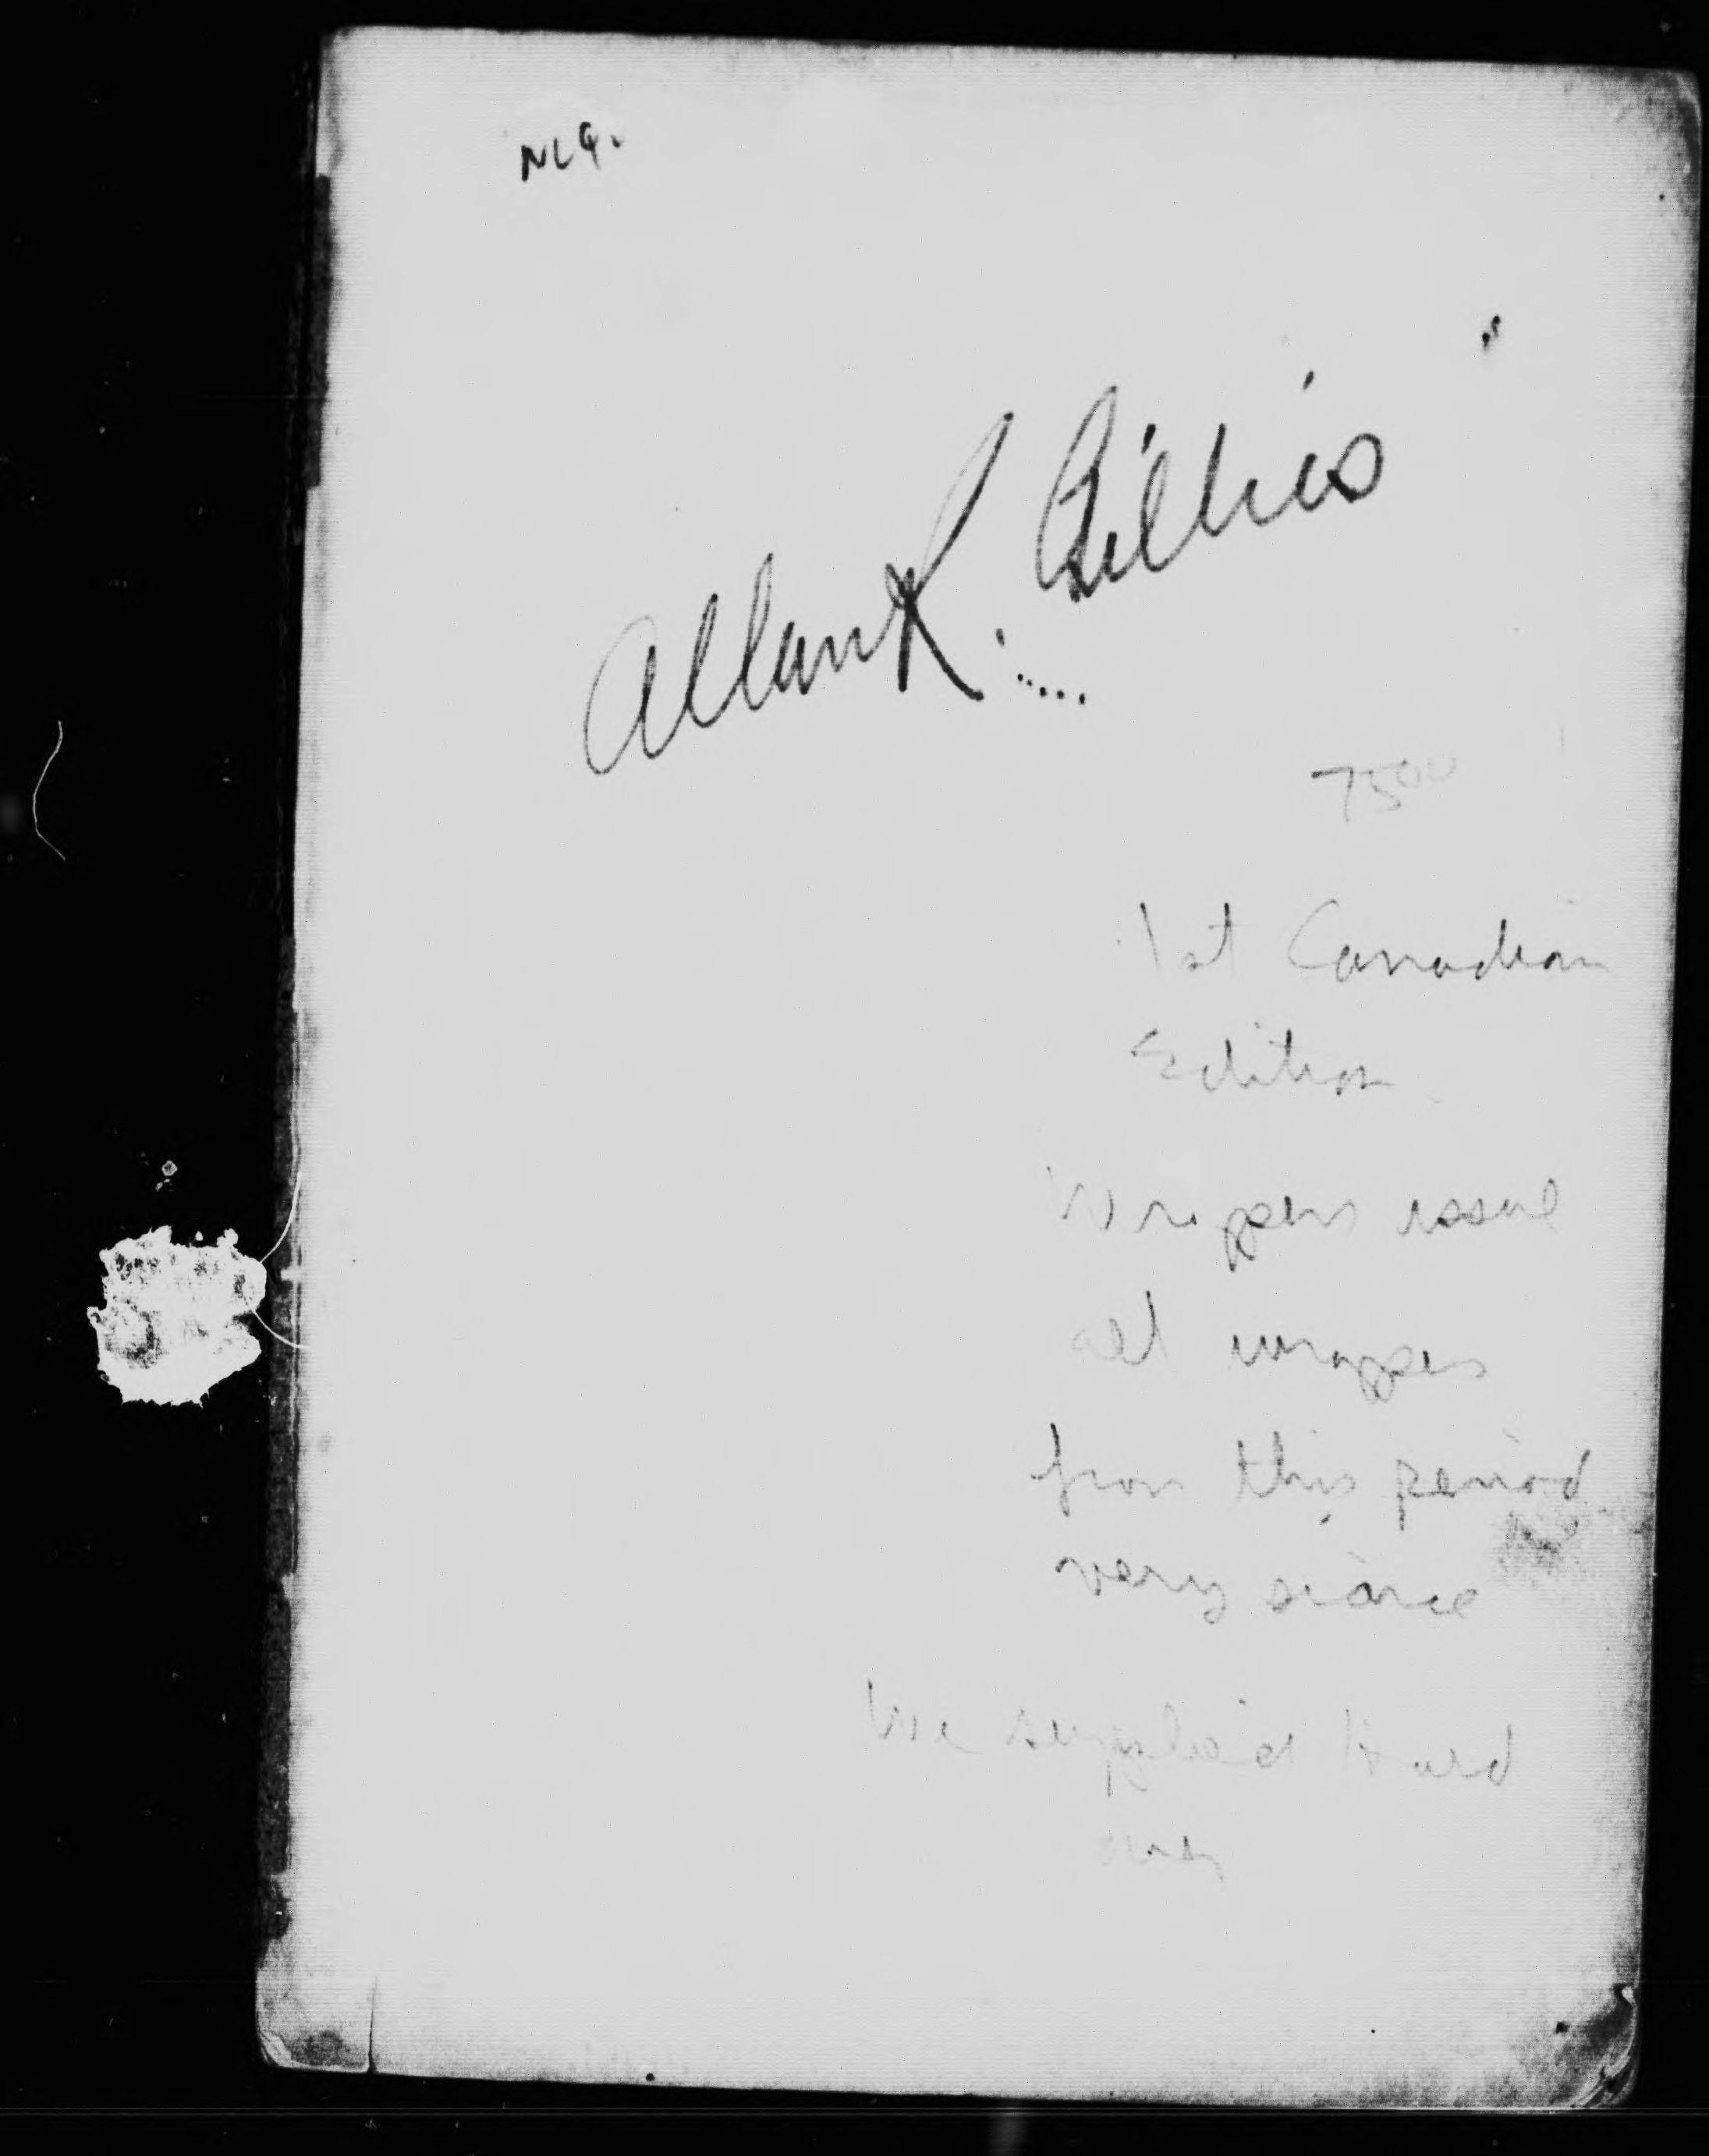 Allan R. Gillies
7500
1st Canadian
Edition
Wrappers issue
all wrappers
from this period
very scarce
We supplied